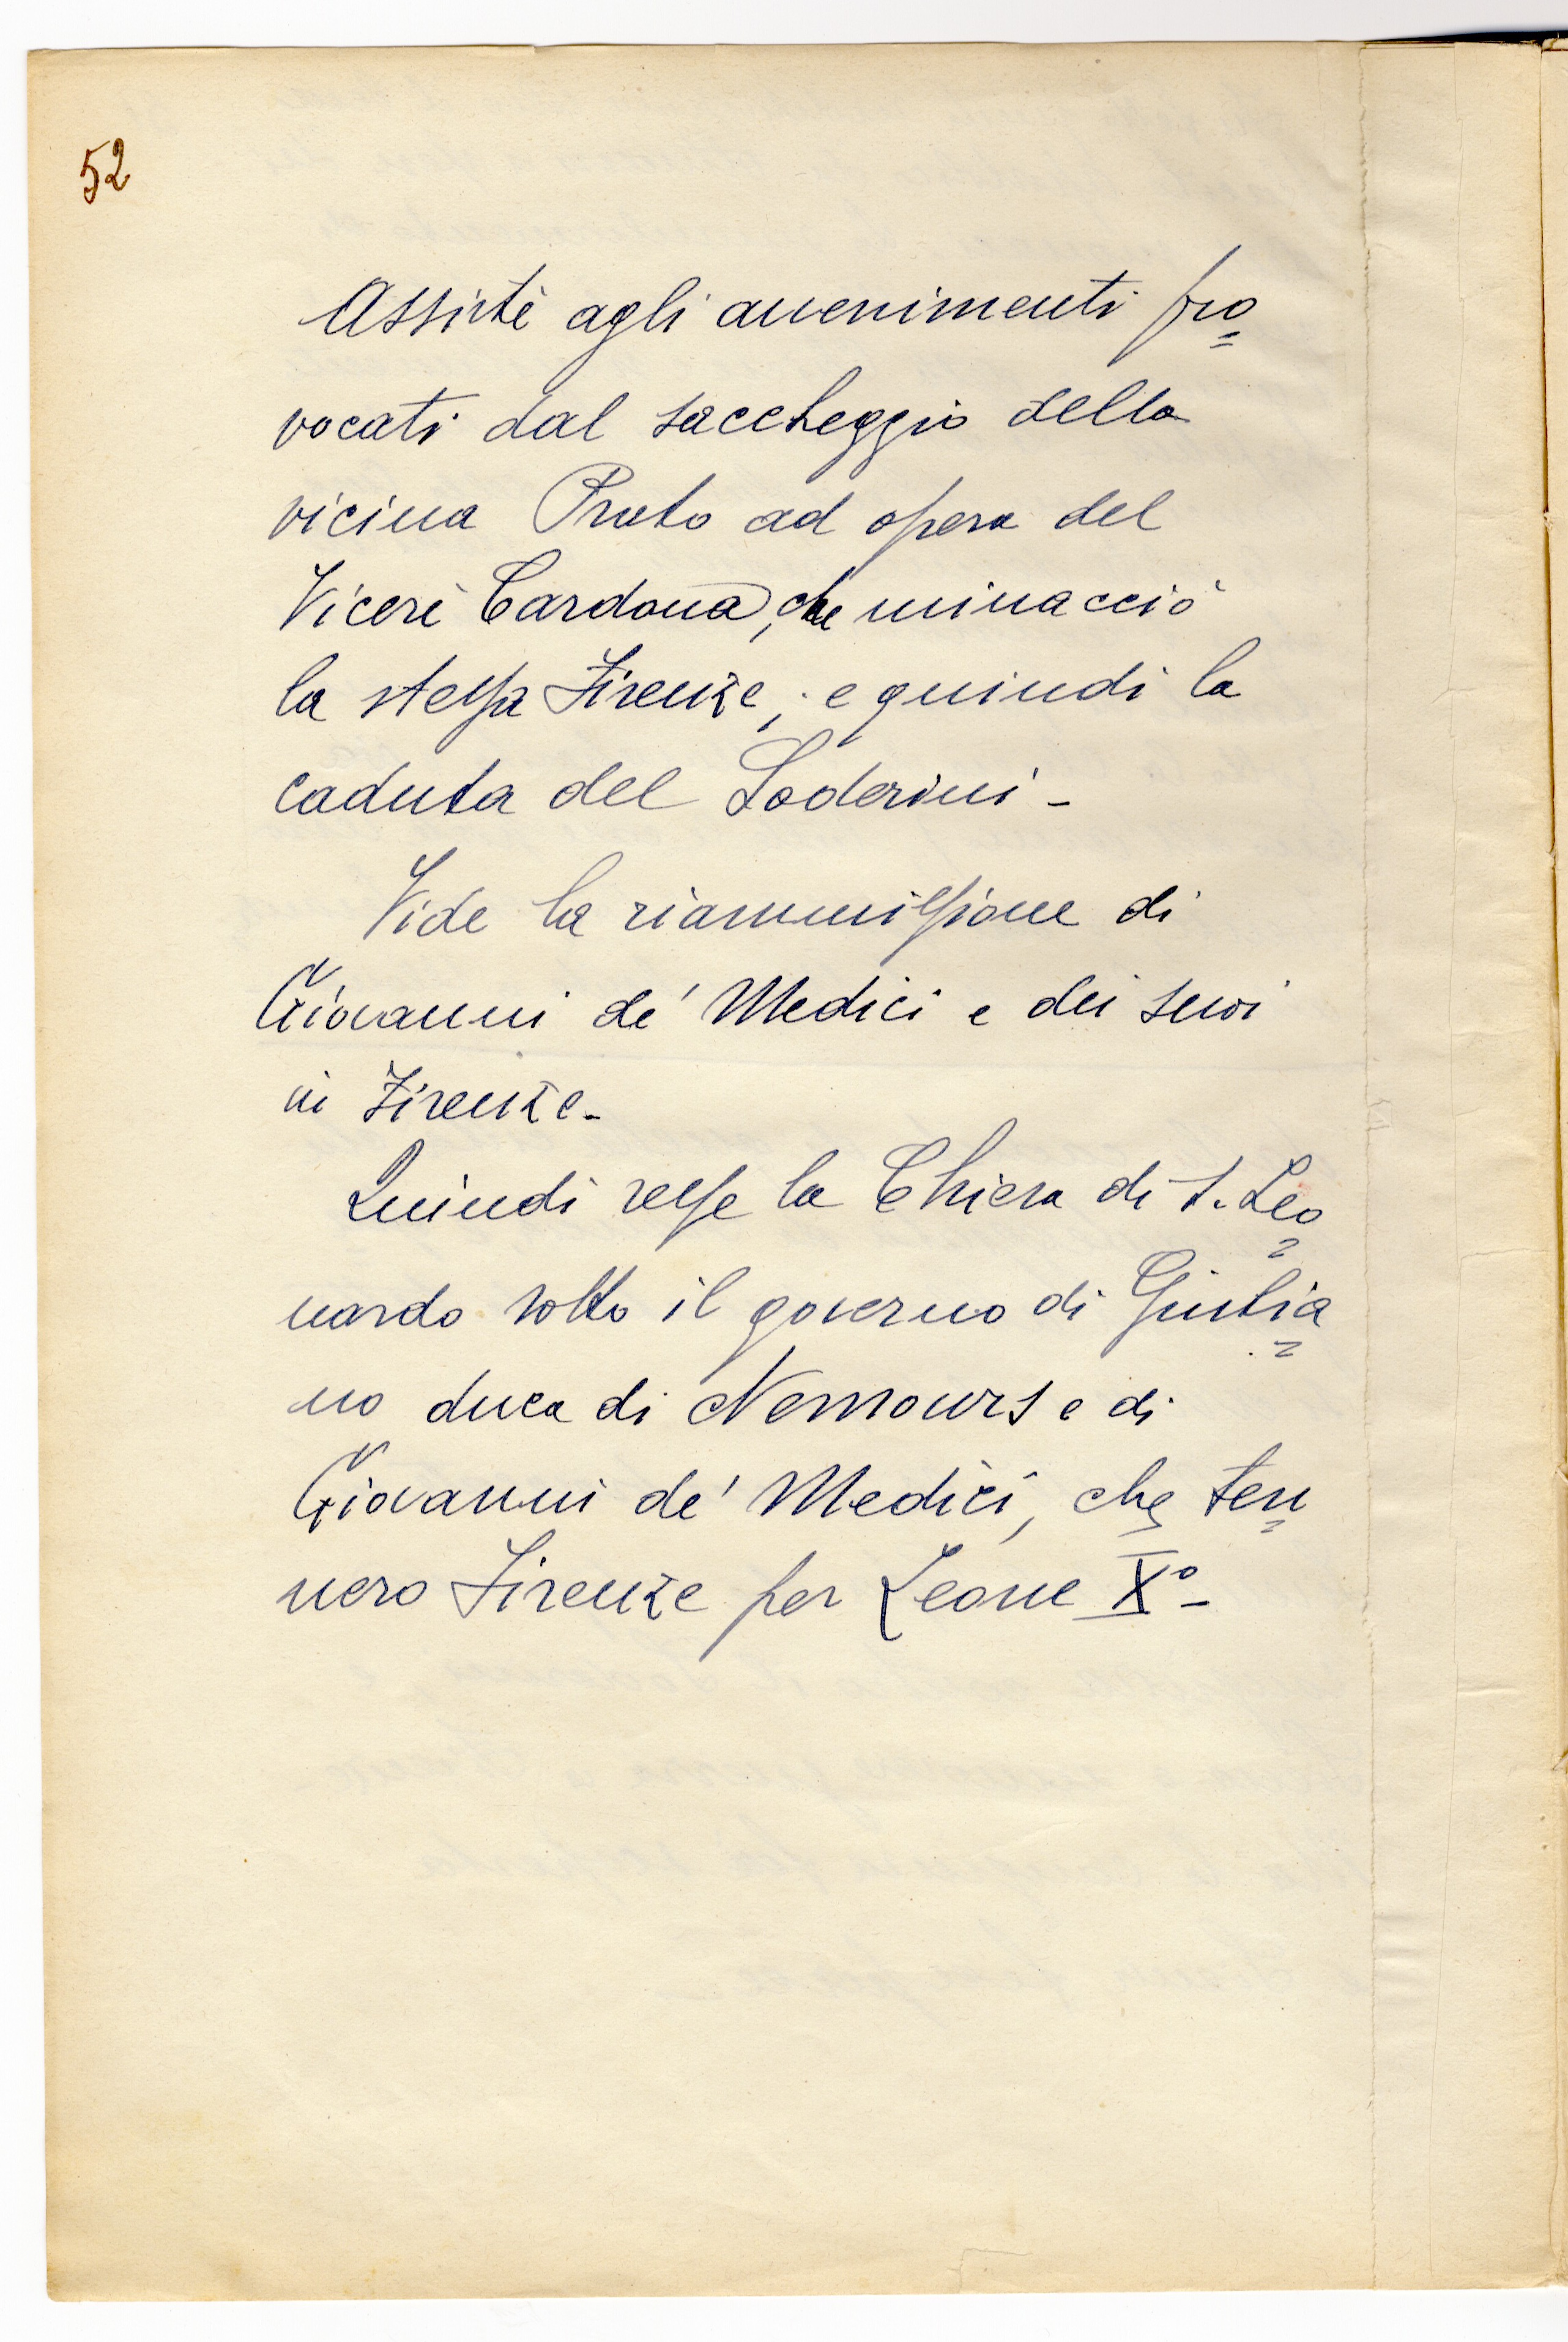 52
Assistè agli avvenimenti pro=
vocati dal saccheggio della
vicina Prato ad opera del
Vicerè Cardona, che minacciò
la stessa Firenze, e quindi la
caduta del Soderini -
Vide la riammissione di
Giovanni de' Medici e dei suoi
in Firenze -
Quindi resse la Chiesa di S. Leo=
nardo sotto il governo di Giulia=
no duca di Nemours e di
Giovanni de' Medici, che ten=
nero Firenze per Leone X° -